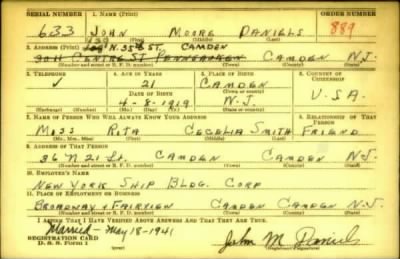 SERIAL NUMBER 1. NAME (Print) ORDER NUMBER
633 JOHN MOORE DANIELS 889
(First) (Middle) (Last)
N. 35th ST. CAMDEN
2. ADDRESS (Print)
3011 CENTRE ST PENNSAUKEN CAMDEN N.J.
(Number and street or R. F. D. number) (Town) (County) (State)
3. TELEPHONE 4. AGE IN YEARS 5. PLACE OF BIRTH 6. COUNTRY OF CITIZENSHIP
21 CAMDEN
DATE OF BIRTH
4-5-1919 N.J. U.S.A
(Exchange) (Number) (Mo.) (Day) (Yr.) (State or country)
7. NAME OF PERSON WHO WILL ALWAYS KNOW YOUR ADDRESS 8. RELATIONSHIP OF THAT PERSON
MISS RITA CECELIA SMITH FRIEND
(Mr., Mrs., Miss) (First) (Middle) (Last)
9. ADDRESS OF THAT PERSON
36 N 21 St. CAMDEN CAMDEN N.J.
(Number and street or R. F. D. number) (Town) (County) (State)
10. EMPLOYER'S NAME
NEW YORK SHIP BLDG. CORP
11. PLACE OF EMPLOYMENT OR BUSINESS
BROADWAY + FAIRVIEW CAMDEN CAMDEN N.J.
(Number and street or R. F. D. number) (Town) (County) (State)
I AFFIRM THAT I HAVE VERIFIED ABOVE ANSWERS AND THAT THEY ARE TRUE.
Married - May 18-1941
REGISTRATION CARD
D. S. S. Form 1 John M Daniels